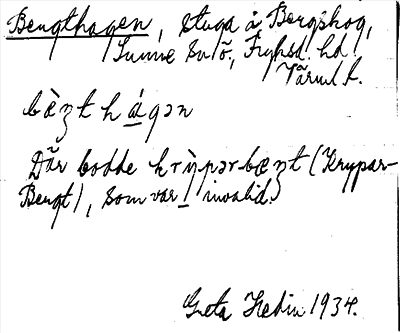 Bengthagen, stuga å Bergskog,
Sunne sn ö., Fryksd. hd
Värml. l.
bæ̀ŋt há̱gən
Där bodde krỳpərbæŋt (Krypar-
Bengt), som var invalid.
Greta Hedin 1934.